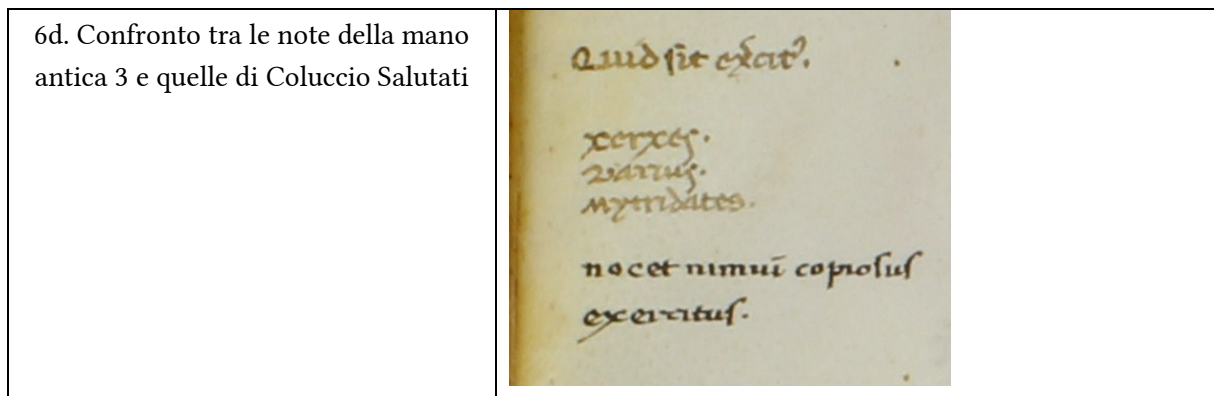 6d. Confronto tra le note della mano
antica 3 e quelle di Coluccio Salutati
Quid sit ex̄cit⁹.
xerxes.
Darius.
Mytridates.
nocet nimiū copiosus
exercitus.